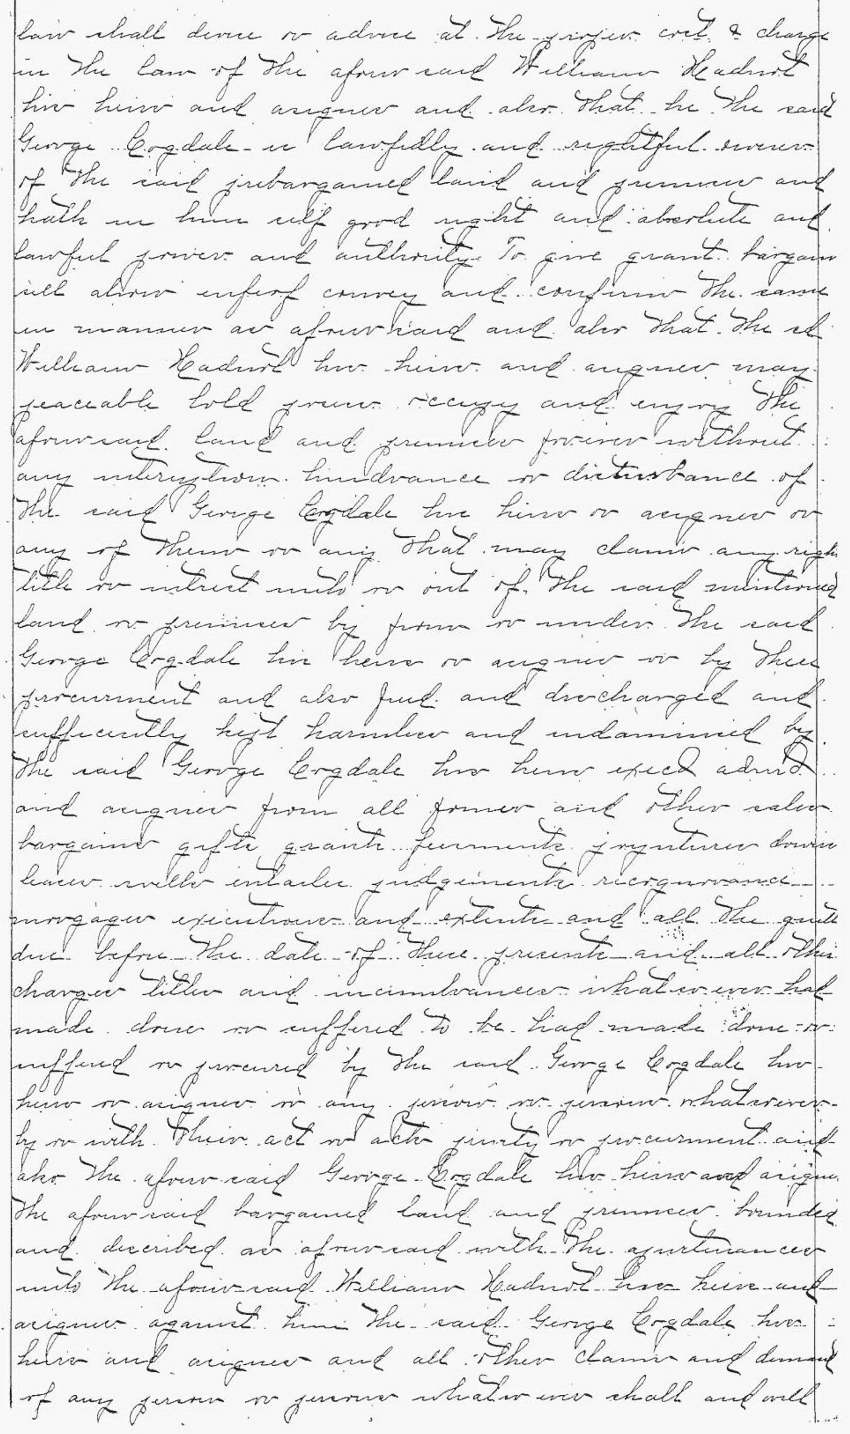 law shall devise or advise at the proper cost & charge
in the law of the afour said William Hadnot
his heirs and asignes and also that he the said
George Cogdale is lawfully and rightful owner
of the said prebargained land and premises and
hath in him self good right and absolute and
lawful power and authority To give grant bargain
sell alion infeof convey and confirm the same
in manner as afoursaid and also that the sd
William Hadnot his heirs and asignes may
peaceable hold posess occupy and enjoy the
afoursaid land and premises forever without
any interuption hindvance or disturbance of
the said George Cogdale his heirs or asignes or
any of them or any that may claim any right
title or intrest unto or out of the said mentioned
land or premises by from or under the said
George Cogdale his heirs or asignes or by their
procurment and also freed and discharged and
sufficently kept harmless and indamnied by
the said George Cogdale his heirs execd admd
and asignes from all former and other sales
bargains gifts grants feerments joyntures dowers
leases wills entailes judgements recognovance
morgages executions and extents and all the quitt
due before the date of these presents and all other
charges titles and incumbrances whatsoever had
made done or suffered to be had made done or
suffered or procured by the said George Cogdale his
heirs or asignes or any person or persons whatsoever
by or with their act or acts privity or procurment and
also the afoursaid George Cogdale his heirs and asignes
the afoursaid bargained land and premises bounded
and discribed as afoursaid with the apurtenances
unto the afoursaid William Hadnot his heirs and
asignes against him the said George Cogdale his
heirs and asignes and all other claims and demand
of any person or persons whatsoever shall and will